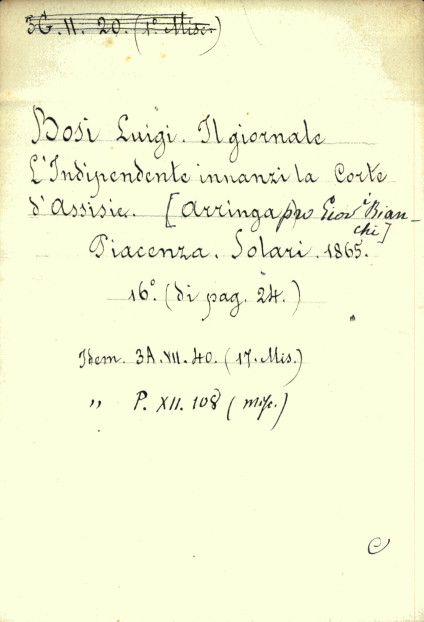 3G. II. 20. (1º Misc.)
Bosi Luigi. Il giornale
L'Indipendente innanzi la Corte
d'Assisie. [Arringa pro Giovˑ Bian-
chi]
Piacenza. Solari. 1865.
16º. (di pag. 24.)
Idem. 3A. VII. 40. (17. Mis.)
„ P. XII. 108 (misc.)
C